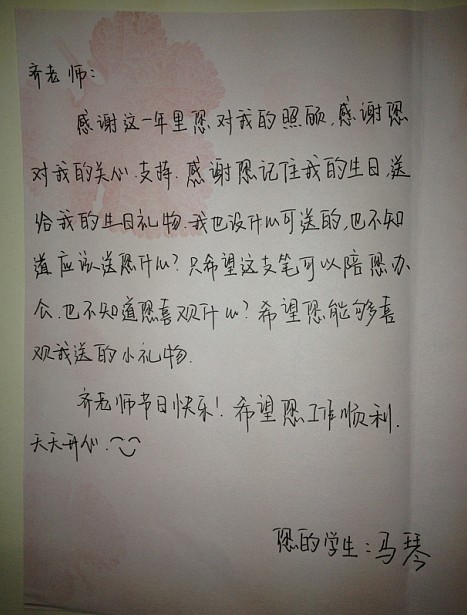 齐老师:
感谢这一年里您对我的照顾,感谢您
对我的关心.支持.感谢您记住我的生日,送
给我的生日礼物.我也没什么可送的,也不知
道应该送您什么?只希望这支笔可以陪您办
公.也不知道您喜欢什么?希望您能够喜
欢我送的小礼物.
齐老师节日快乐!希望您工作顺利.
天天开心.
您的学生:马琴